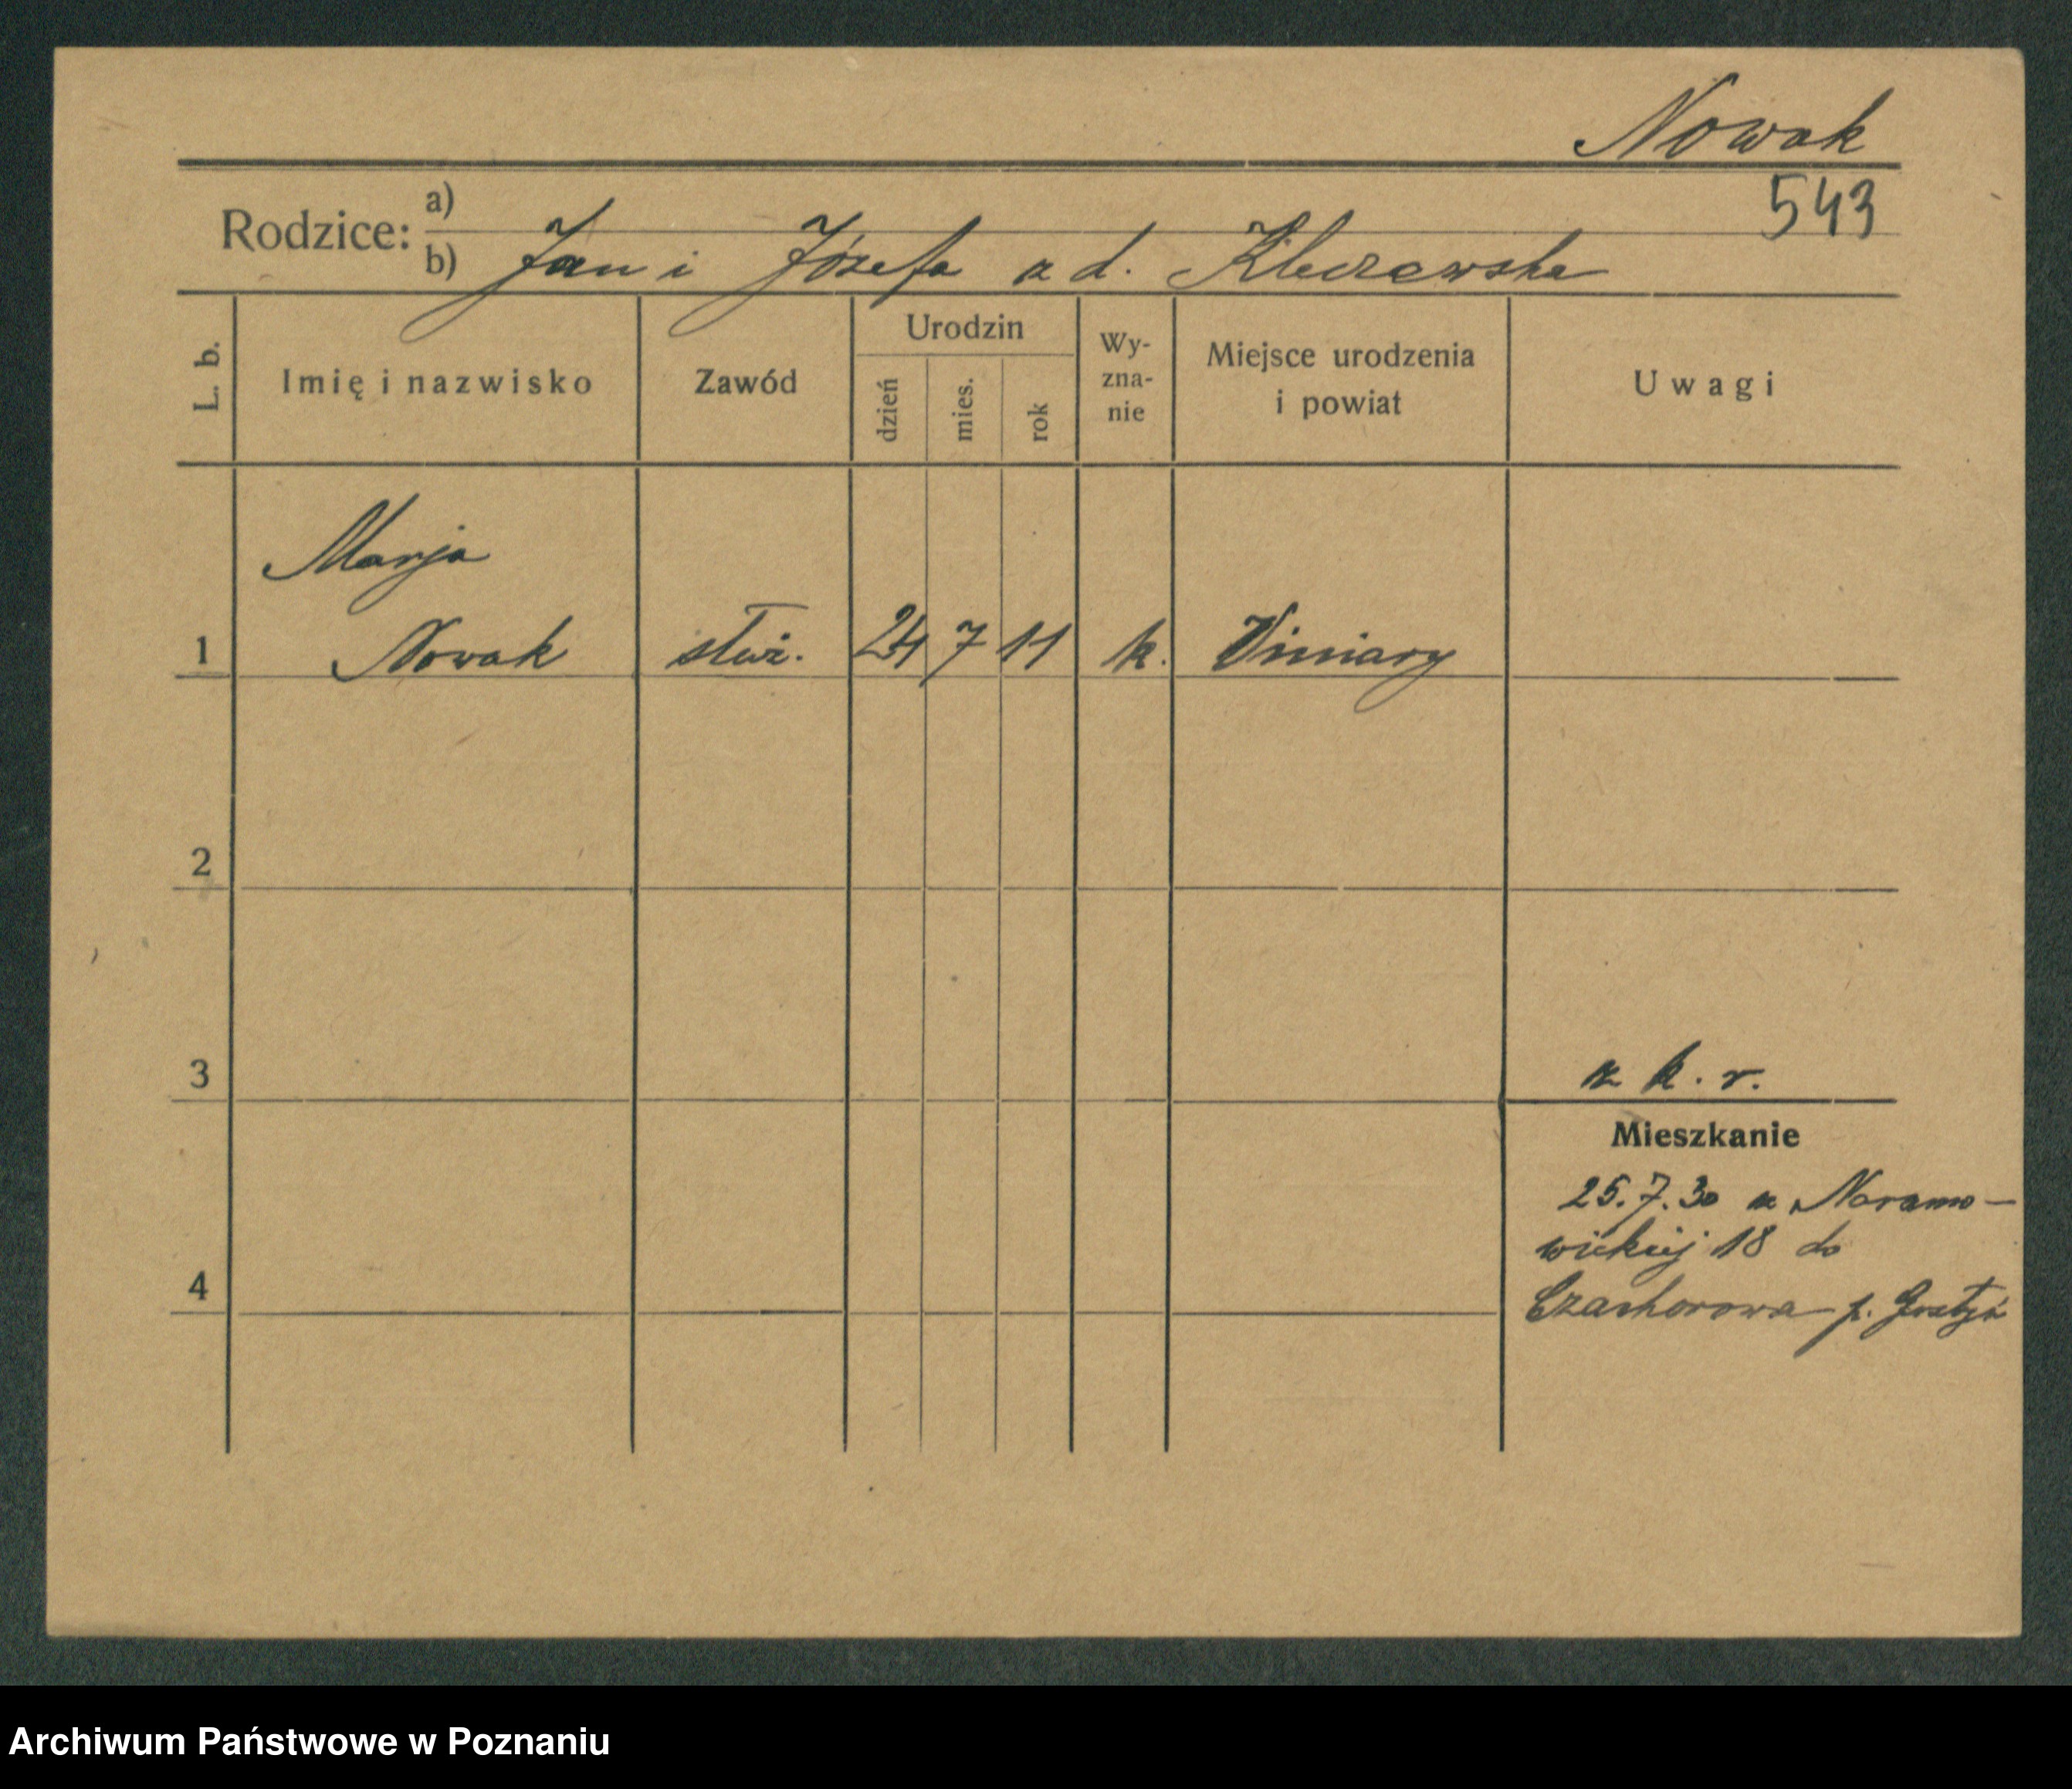 Nowak
543
Rodzice: a)
b) Jan i Józefa z d. Kluczewska
L. b.
Imię i nazwisko
Zawód
Urodzin
dzień
mies.
rok
Wy-
zna-
nie
Miejsce urodzenia
i powiat
Uwagi
Marja
1 Nowak służ. 24 7 11 k. Winiary
2
3
z k. r.
Mieszkanie
25.7.30 z Naramo-
wickiej 18 do
4
Czachorowa p. Gostyń
Archiwum Państwowe w Poznaniu